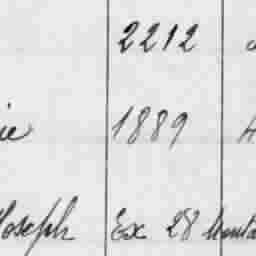 2212
ie 1889
Joseph Ex 28